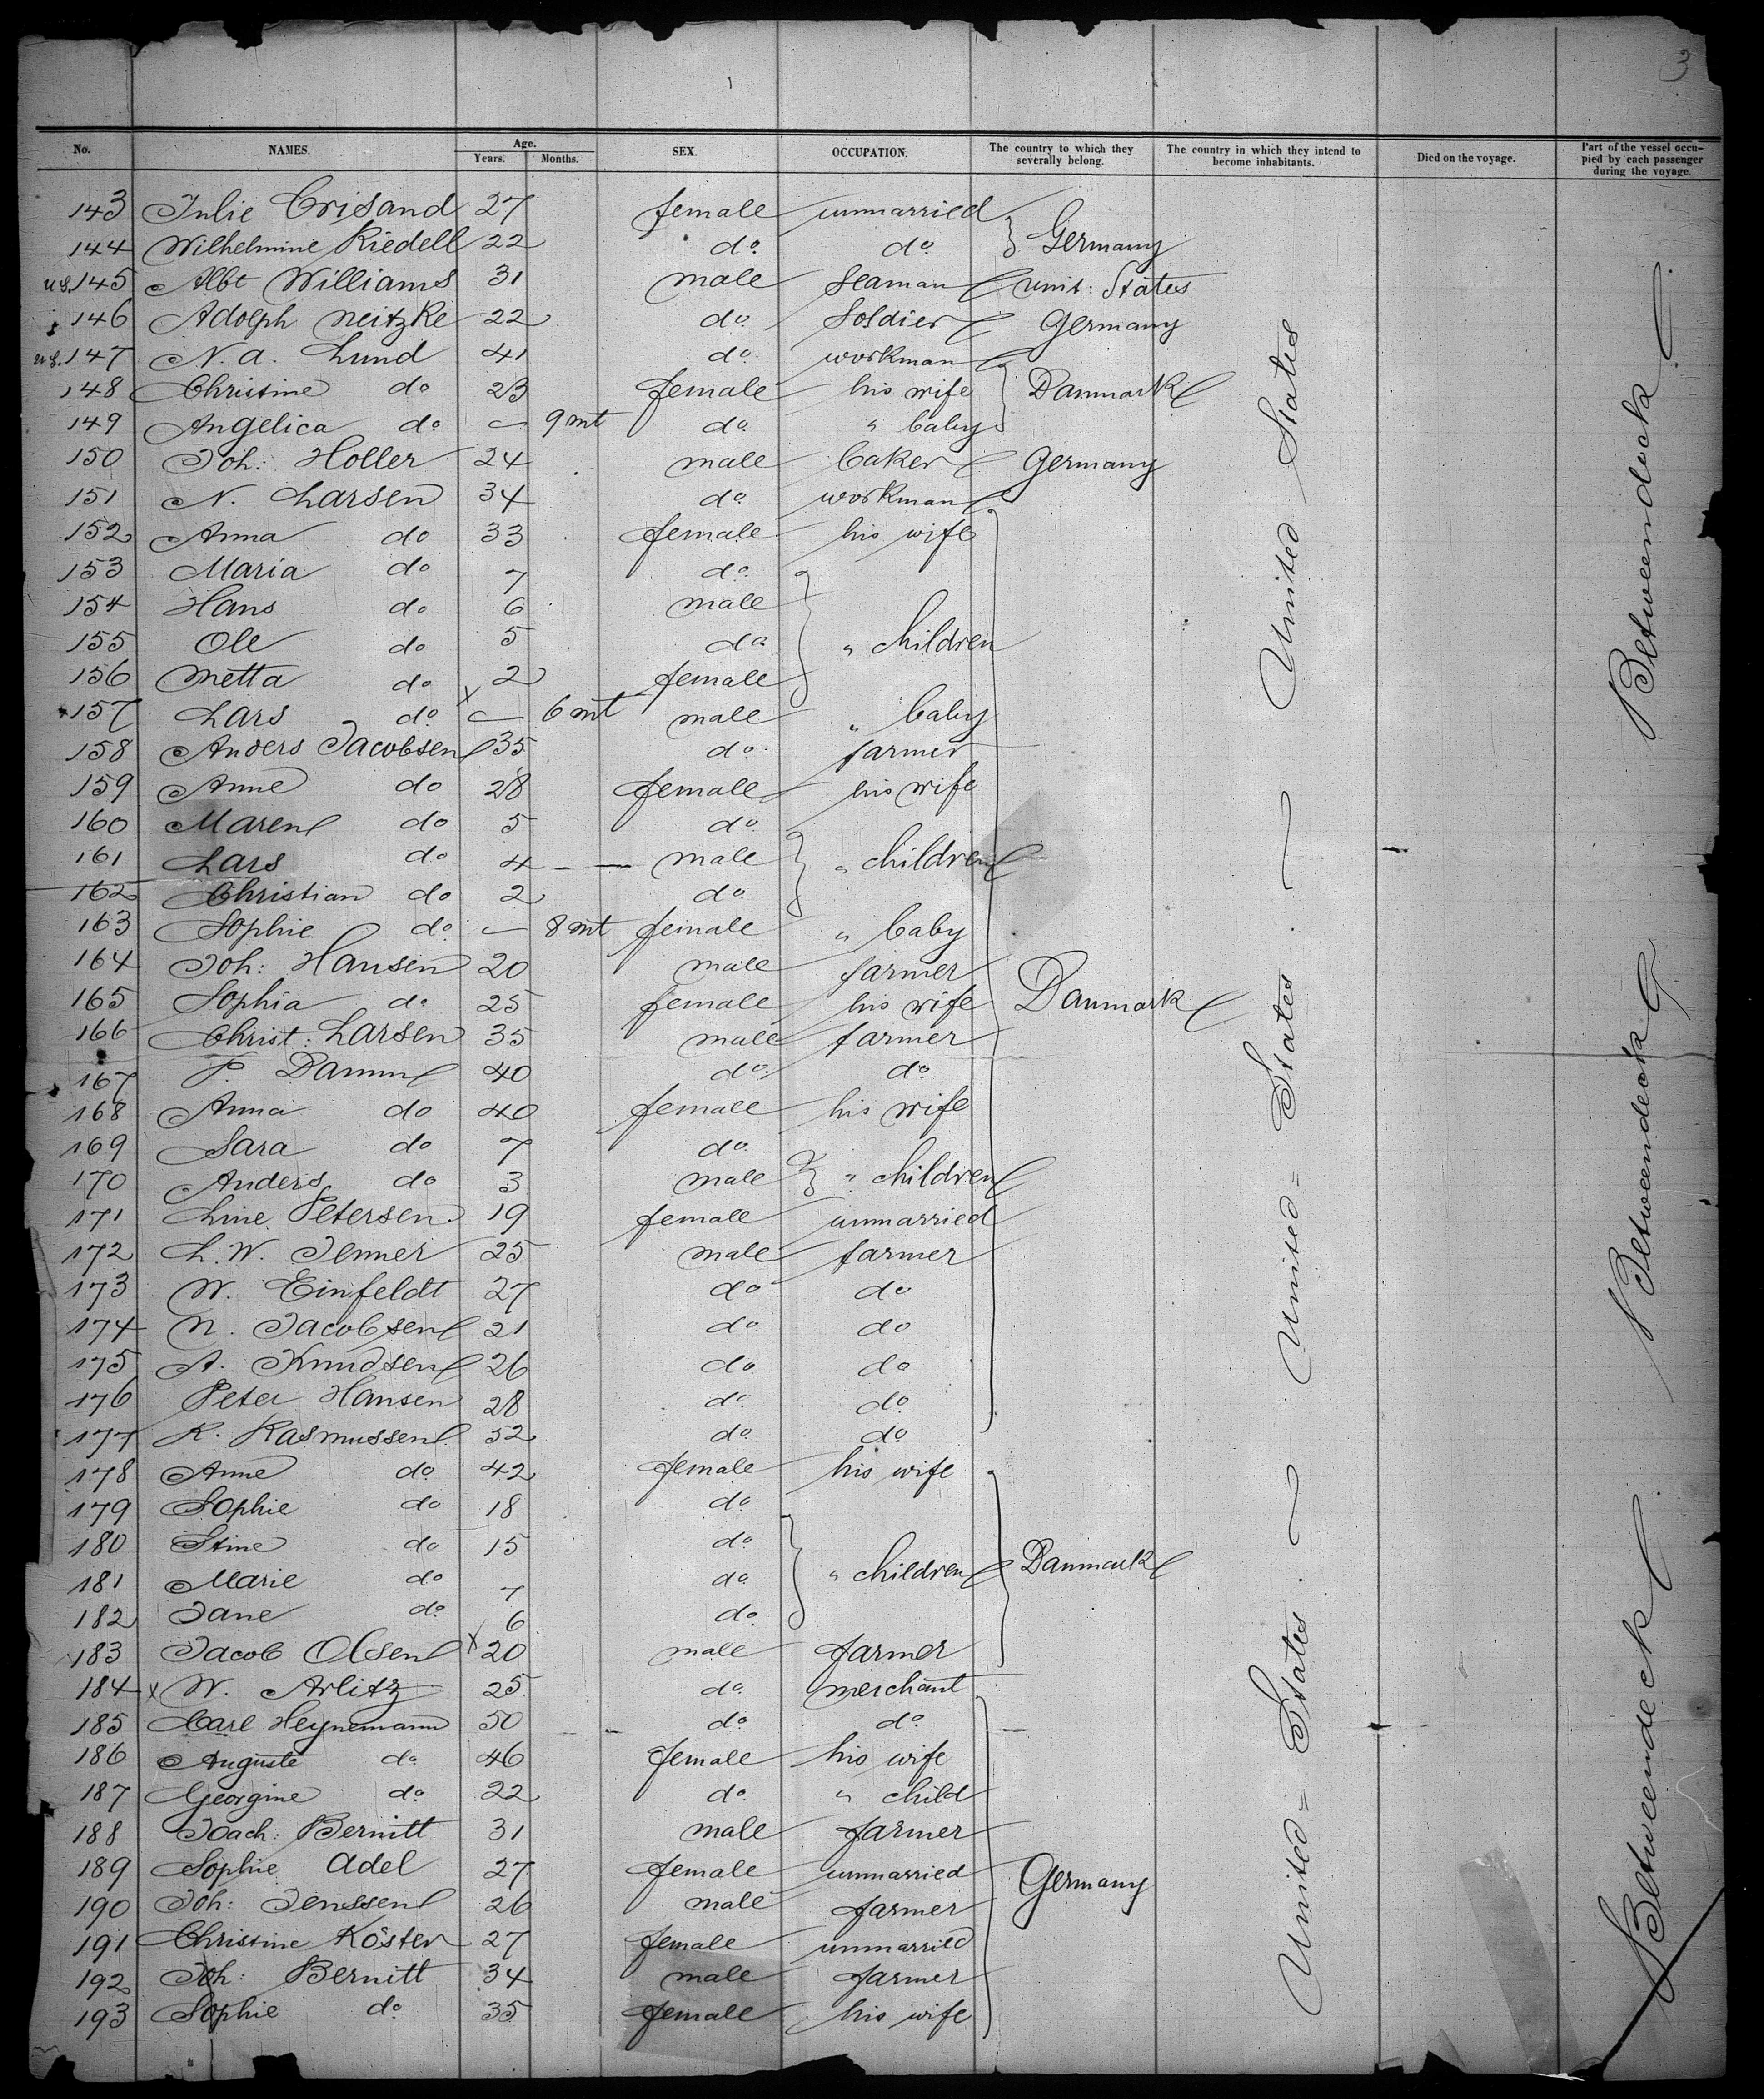 3
No. NAMES. Age. Years. Months. SEX. OCCUPATION. The country to which they severally belong. The country in which they intend to become inhabitants. Died on the voyage. Part of the vessel occupied by each passenger during the voyage.
143 Julie Crisand 27 female unmarried
144 Wilhelmine Riedell 22 do do } Germany
U.S. 145 Albt Williams 31 male seaman unit: States
146 Adolph Neitzke 22 do Soldier Germany
U.S. 147 N. A. Lund 41 do workman
148 Christine do 23 female his wife } Danmark
149 Angelica do — 9 mt do " baby
150 Joh: Holler 24 male baker Germany
151 N. Larsen 34 do workman
152 Anna do 33 female his wife
153 Maria do 7 do
154 Hans do 6 male
155 Ole do 5 do } " children
156 Metta do 2 female
157 Lars do x — 6 mt male " baby
158 Anders Jacobsen 35 do farmer
159 Anne do 28 female his wife
160 Maren do 5 do
161 Lars do 4 — — male } " children
162 Christian do 2 do
163 Sophie do — 8 mt female " baby
164 Joh: Hansen 20 male farmer
165 Sophia do 25 female his wife } Danmark
166 Christ: Larsen 35 male farmer
167 P. Damm 40 do do
168 Anna do 40 female his wife
169 Sara do 7 do
170 Anders do 3 male } " children
171 Line Petersen 19 female unmarried
172 L. W. Jenner 25 male farmer
173 W. Einfeldt 27 do do
174 N. Jacobsen 21 do do
175 A. Knudsen 26 do do
176 Peter Hansen 28 do do
177 R. Rasmussen 52 do do
178 Anne do 42 female his wife
179 Sophie do 18 do
180 Stine do 15 do
181 Marie do 7 do } " children } Danmark
182 Jane do 6 do
183 Jacob Olsen x 20 male farmer
184 x W. Arlitz 25 do merchant
185 Carl Heynemann 50 do do
186 Auguste do 46 female his wife
187 Georgine do 22 do " child
188 Joach: Bernitt 31 male farmer
189 Sophie Adel 27 female unmarried } Germany
190 Joh: Jenssen 26 male farmer
191 Christine Köster 27 female unmarried
192 Joh: Bernitt 34 male farmer
193 Sophie do 35 female his wife
United States
United = States
United = States
Betweendeck
Betweendeck
Betweendeck